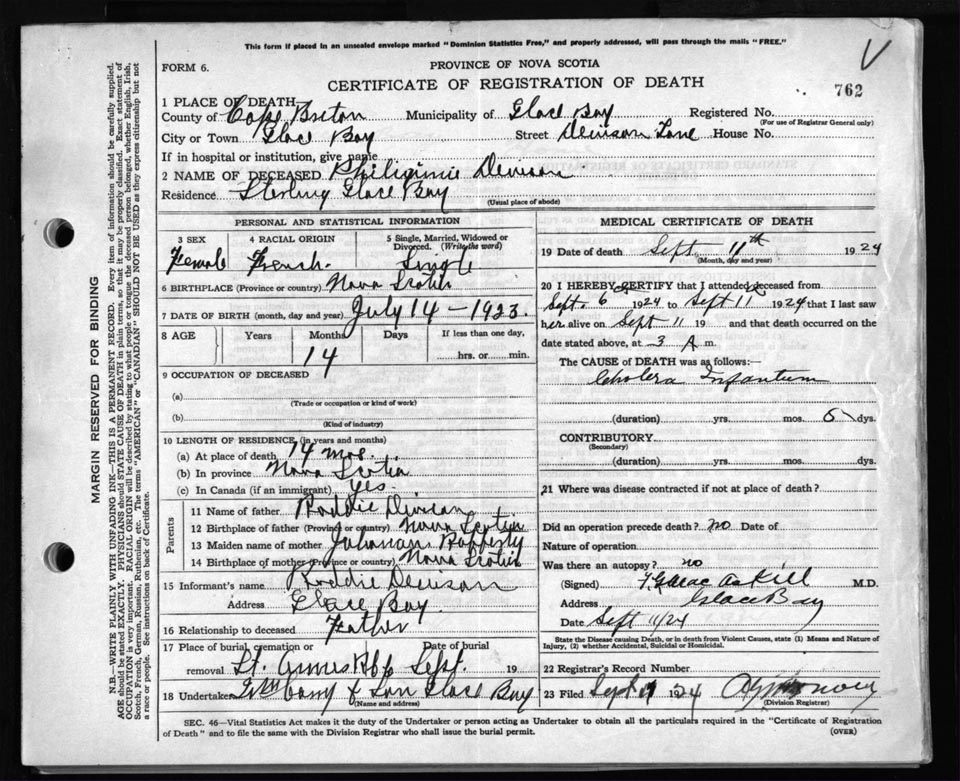 This form if placed in an unsealed envelope marked "Dominion Statistics Free," and properly addressed, will pass through the mails "FREE."
FORM 6.
PROVINCE OF NOVA SCOTIA
CERTIFICATE OF REGISTRATION OF DEATH
762
1 PLACE OF DEATH
County of Cape Breton Municipality of Glace Bay Registered No.
(For use of Registrar General only)
City or Town Glace Bay Street Devison Lane House No.
If in hospital or institution, give name
2 NAME OF DECEASED Devison
Residence Sterling Glace Bay
(Usual place of abode)
PERSONAL AND STATISTICAL INFORMATION
3 SEX 4 RACIAL ORIGIN 5 Single, Married, Widowed or Divorced. (Write the word)
Female French. Single
6 BIRTHPLACE (Province or country) Nova Scotia
7 DATE OF BIRTH (month, day and year) July 14 - 1923.
8 AGE Years Months Days If less than one day,
14 hrs. or min.
9 OCCUPATION OF DECEASED
(a)
(Trade or occupation or kind of work)
(b)
(Kind of industry)
10 LENGTH OF RESIDENCE (in years and months)
(a) At place of death 14 mos.
(b) In province Nova Scotia
(c) In Canada (if an immigrant) yes.
Parents
11 Name of father Roddie Devison
12 Birthplace of father (Province or country) Nova Scotia
13 Maiden name of mother Rafferty
14 Birthplace of mother (Province or country) Nova Scotia
15 Informant's name Roddie Devison
Address Glace Bay.
16 Relationship to deceased Father
17 Place of burial, cremation or removal Date of burial
St. Sept. 19
18 Undertaker & Son Glace Bay
(Name and address)
MEDICAL CERTIFICATE OF DEATH
19 Date of death Sept 11th 1924
(Month, day and year)
20 I HEREBY CERTIFY that I attended deceased from
Sept. 6 1924 to Sept 11 1924 that I last saw
her alive on Sept 11 19 and that death occurred on the
date stated above, at 3 A.m.
The CAUSE of DEATH was as follows:—
Cholera Infantum
(duration) yrs. mos. 5 dys.
CONTRIBUTORY
(Secondary)
(duration) yrs. mos. dys.
21 Where was disease contracted if not at place of death?
Did an operation precede death? no Date of
Nature of operation
Was there an autopsy? no
(Signed) M.D.
Address Glace Bay
Date Sept 11/24
State the Disease causing Death, or in death from Violent Causes, state (1) Means and Nature of Injury, (2) whether Accidental, Suicidal or Homicidal.
22 Registrar's Record Number
23 Filed Sept 1924
(Division Registrar)
SEC. 46—Vital Statistics Act makes it the duty of the Undertaker or person acting as Undertaker to obtain all the particulars required in the "Certificate of Registration
of Death" and to file the same with the Division Registrar who shall issue the burial permit. (OVER)
MARGIN RESERVED FOR BINDING
N.B.—WRITE PLAINLY WITH UNFADING INK—THIS IS A PERMANENT RECORD. Every item of information should be carefully supplied.
AGE should be stated EXACTLY. PHYSICIANS should STATE CAUSE OF DEATH in plain terms, so that it may be properly classified. Exact statement of
OCCUPATION is very important. RACIAL ORIGIN will be described by stating to what people or tongue the deceased person belonged, whether English, Irish,
Scotch, French, German, Russian, Ruthenian, etc. The terms "AMERICAN" or "CANADIAN" SHOULD NOT BE USED as they express citizenship but not
a race or people. See instructions on back of Certificate.